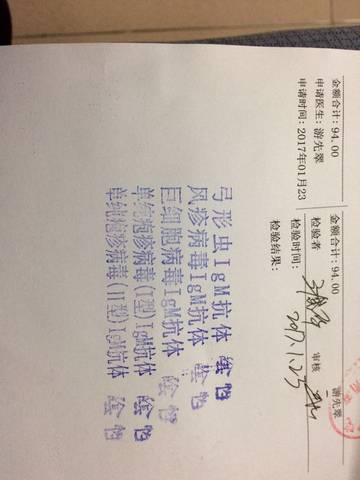 金额合计: 94.00
申请医生: 游先翠
申请时间: 2017年01月23
金额合计: 94.00
游先翠
检验者
审核
检验时间: 2017.1.23
检验结果:
弓形虫IgM抗体 陰性
风疹病毒IgM抗体 陰性
巨细胞病毒IgM抗体 陰性
单纯疱疹病毒(I型)IgM抗体 陰性
单纯疱疹病毒(II型)IgM抗体 陰性